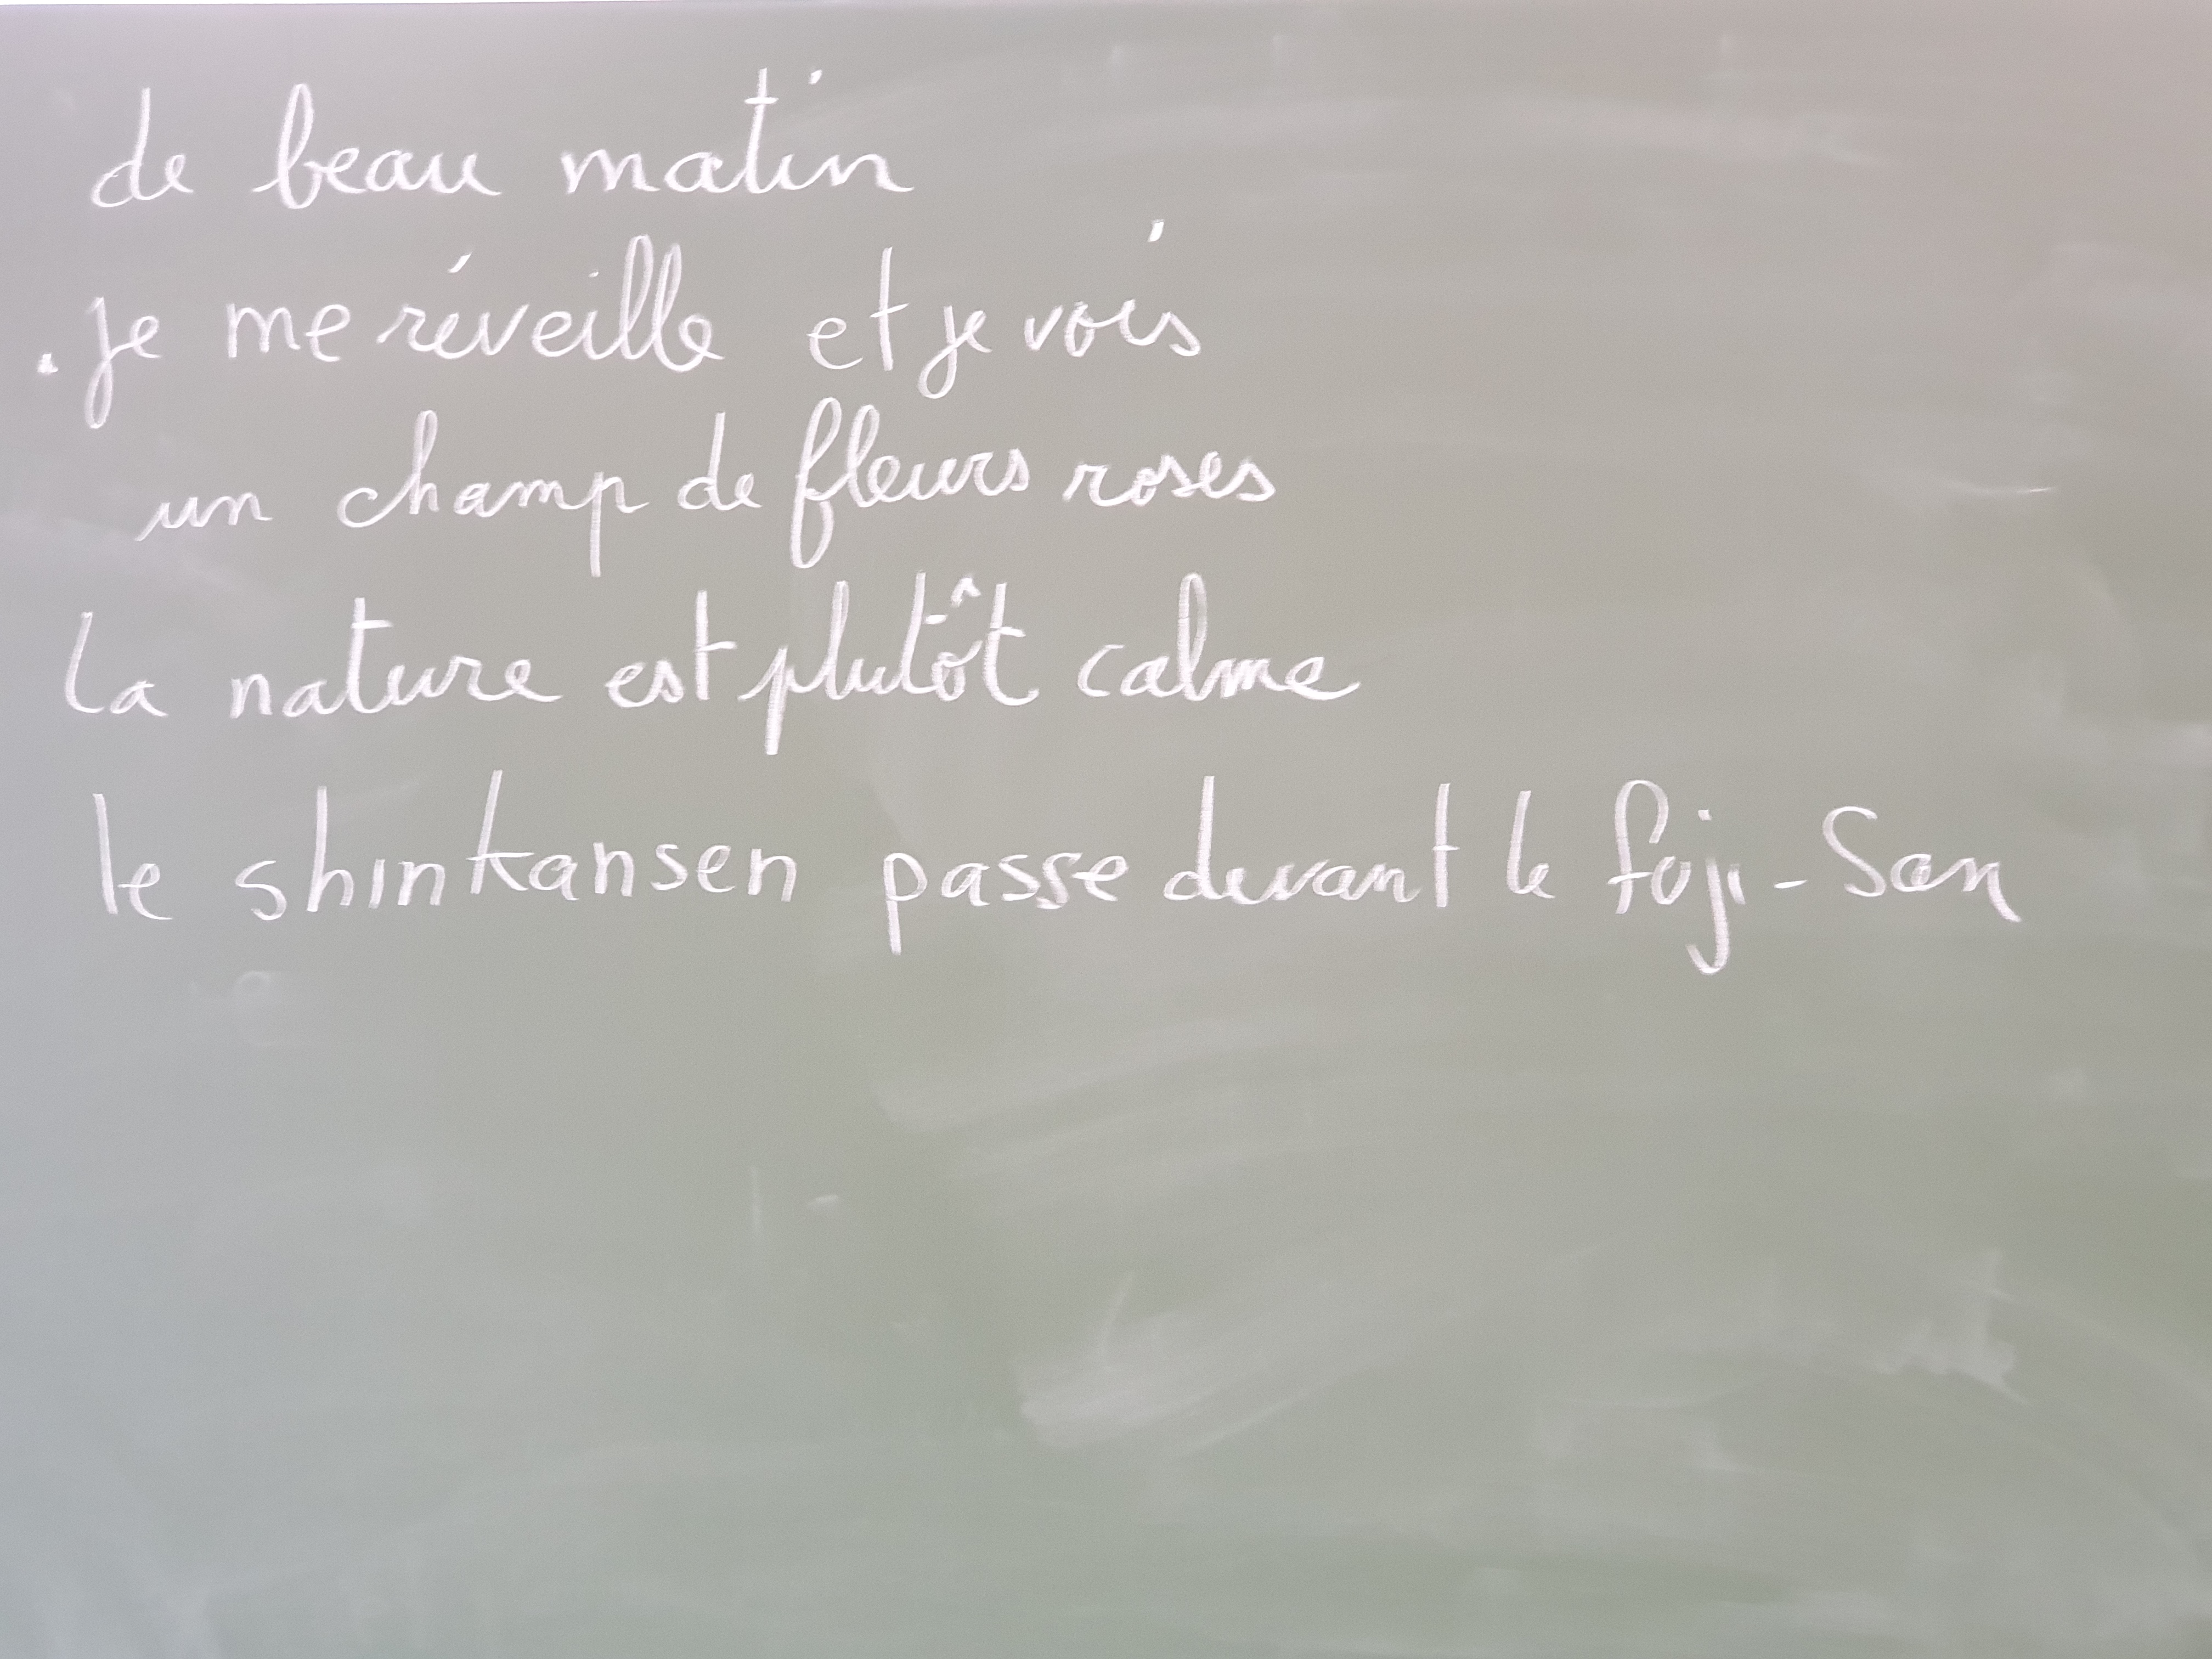 de beau matin
. je me réveille et je vois
un champ de fleurs roses
la nature est plutôt calme
le shinkansen passe devant le fuji-San